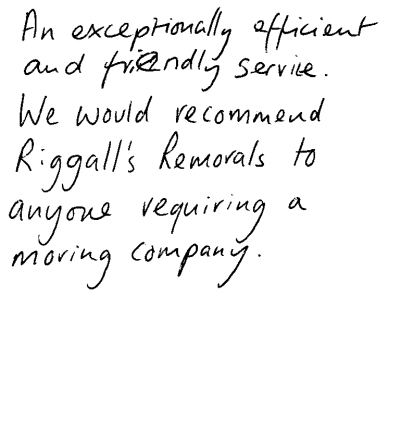 An exceptionally efficient
and friendly service.
We would recommend
Riggall's Removals to
anyone requiring a
moving company.